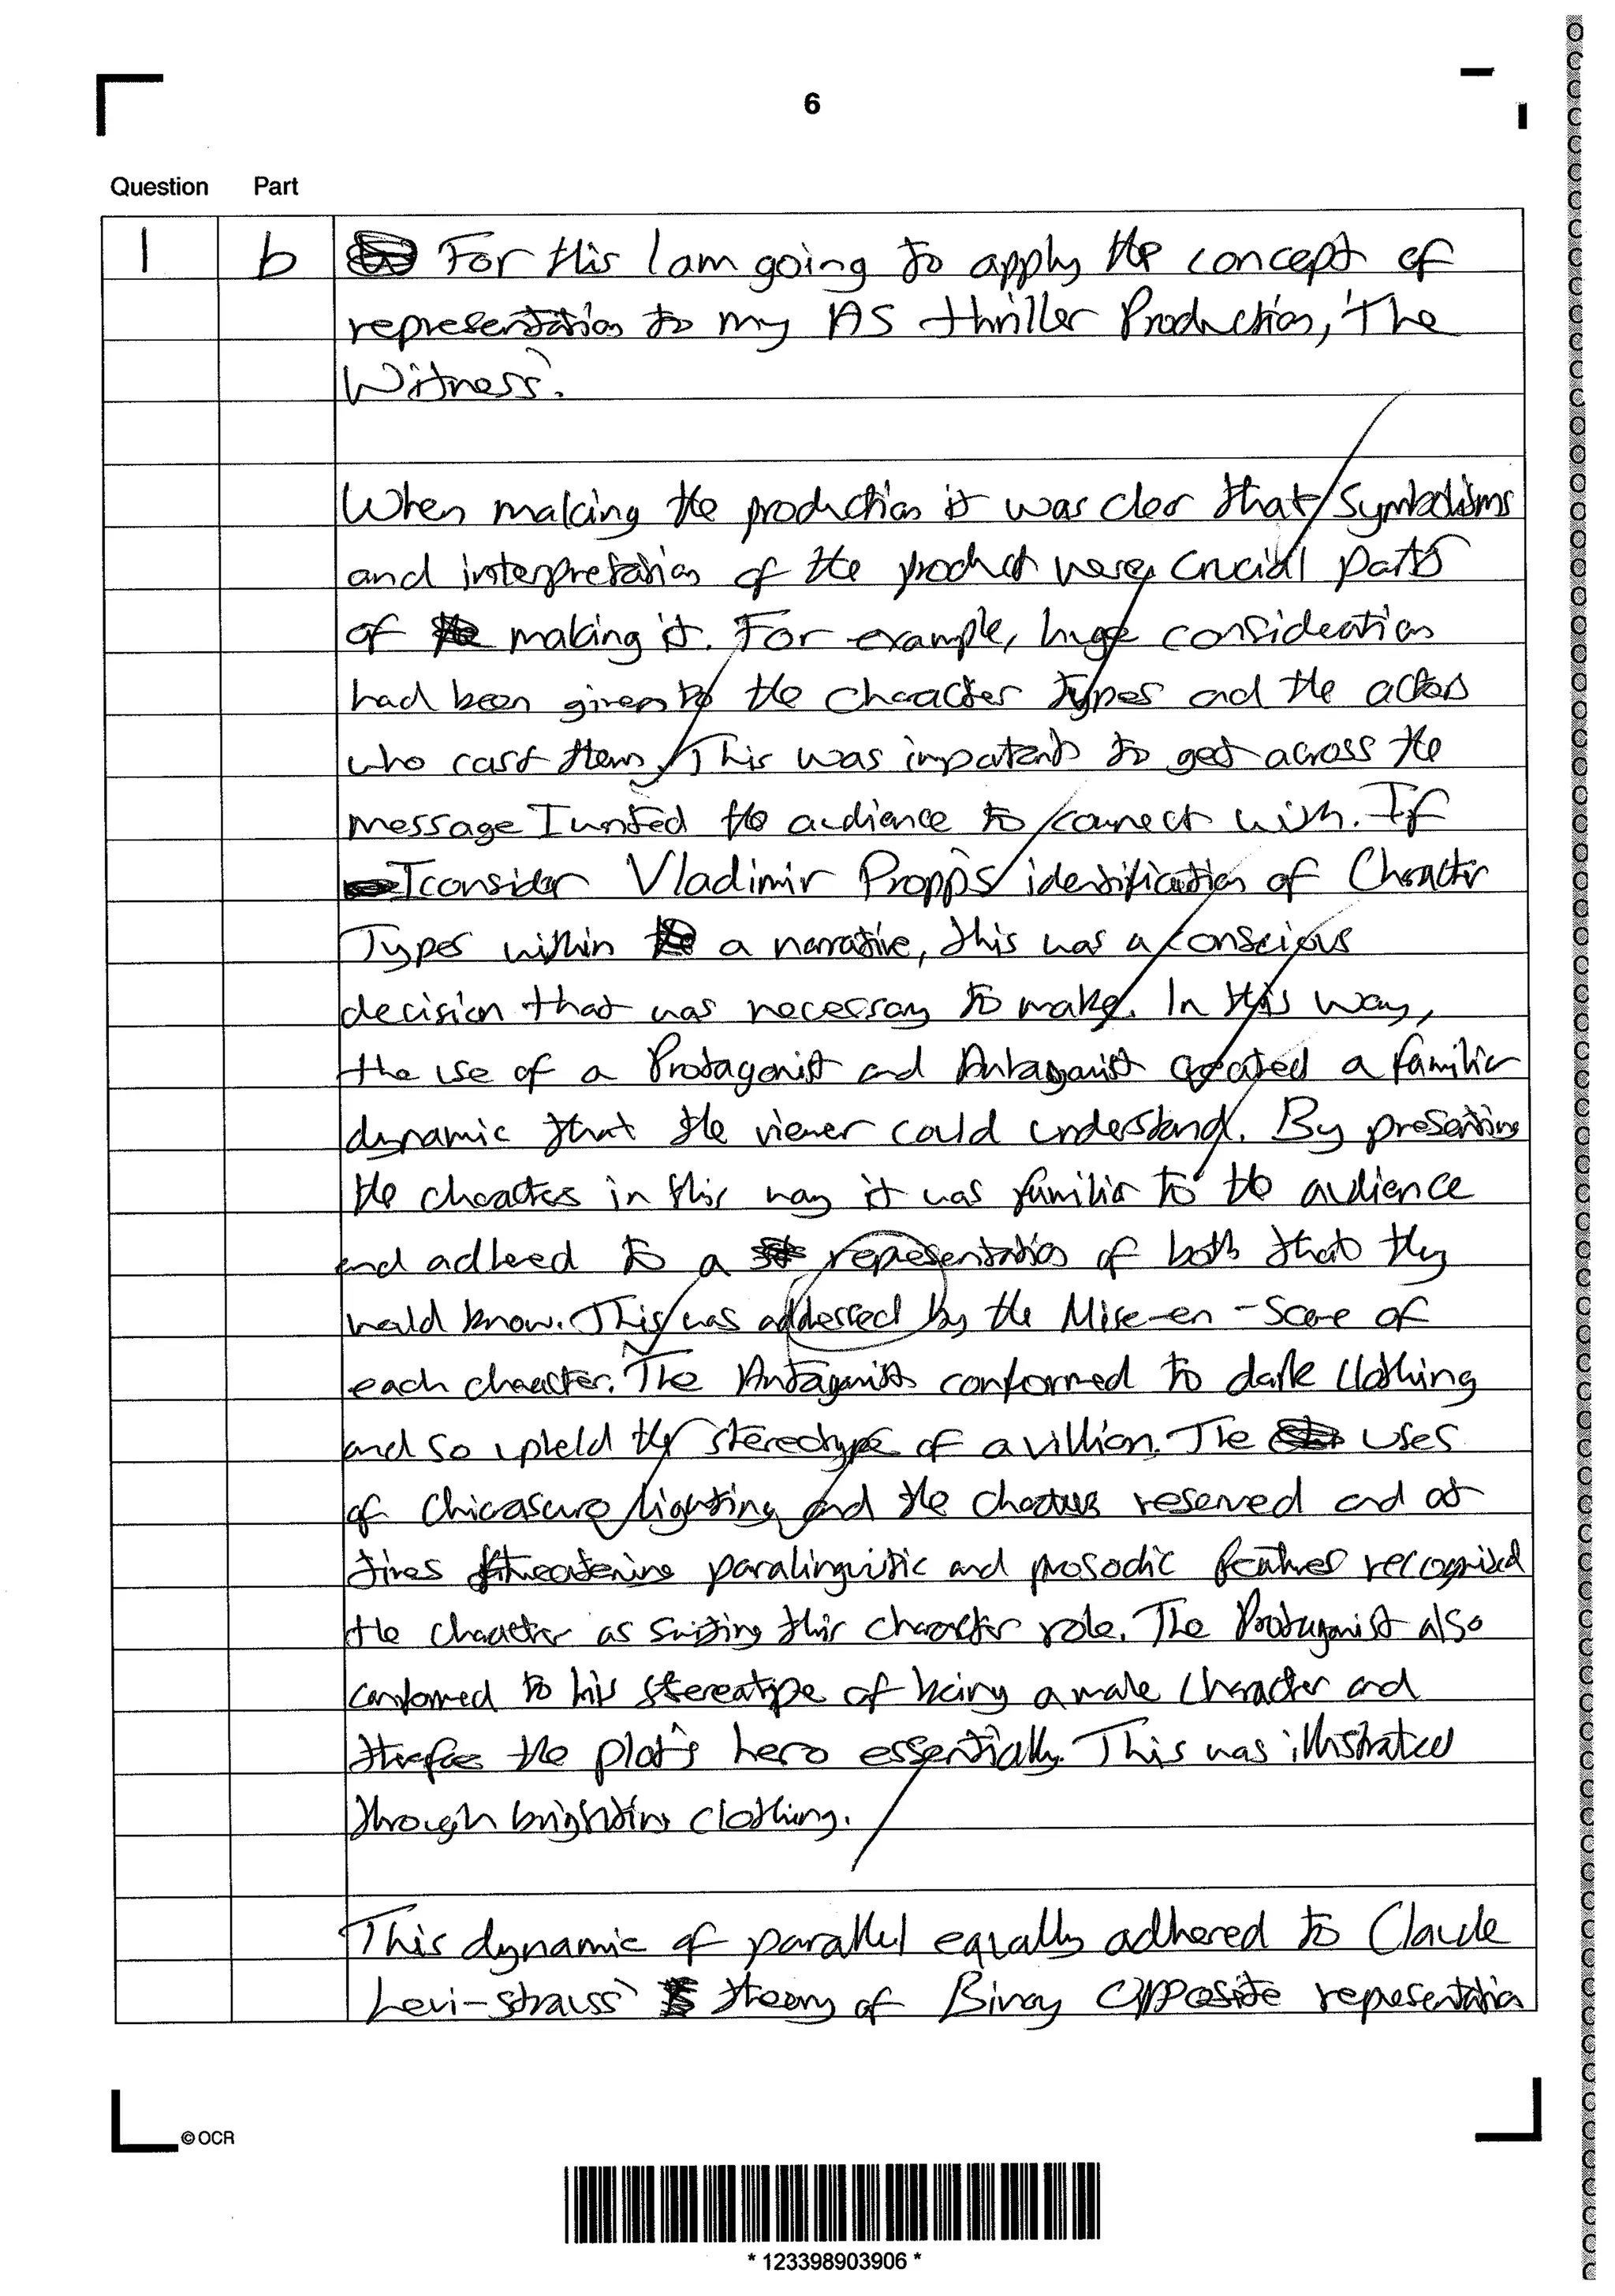 6
Question Part
1 b For this I am going to apply the concept of
representation to my AS thriller Production, 'The
Witness'.
When making the production it was clear that symbolisms
and interpretation of the product were crucial parts
of making it. For example, huge consideration
had been given to the character types and the actors
who cast them. This was important to get across the
message I wanted the audience to connect with. If
I consider Vladimir Propp's identification of Character
Types within a narrative, this was a conscious
decision that was necessary to make. In this way,
the use of a Protagonist and Antagonist created a familiar
dynamic that the viewer could understand. By presenting
the characters in this way it was familiar to the audience
and adhered to a representation of both that they
would know. This was addressed by the Mise-en-Scene of
each character. The Antagonist conformed to dark clothing
and so upheld the stereotype of a villion. The uses
of Chicascuro lighting and the characters reserved and at
times threatening paralinguistic and prosodic features recognised
the character as suiting their character role. The Protagonist also
conformed to his stereotype of being a male character and
therefore the plot's hero essentially. This was illustrated
through brighter clothing.
This dynamic of parallel equally adhered to Claude
Levi-Strauss' theory of Binary Opposite representation
© OCR
*123398903906*